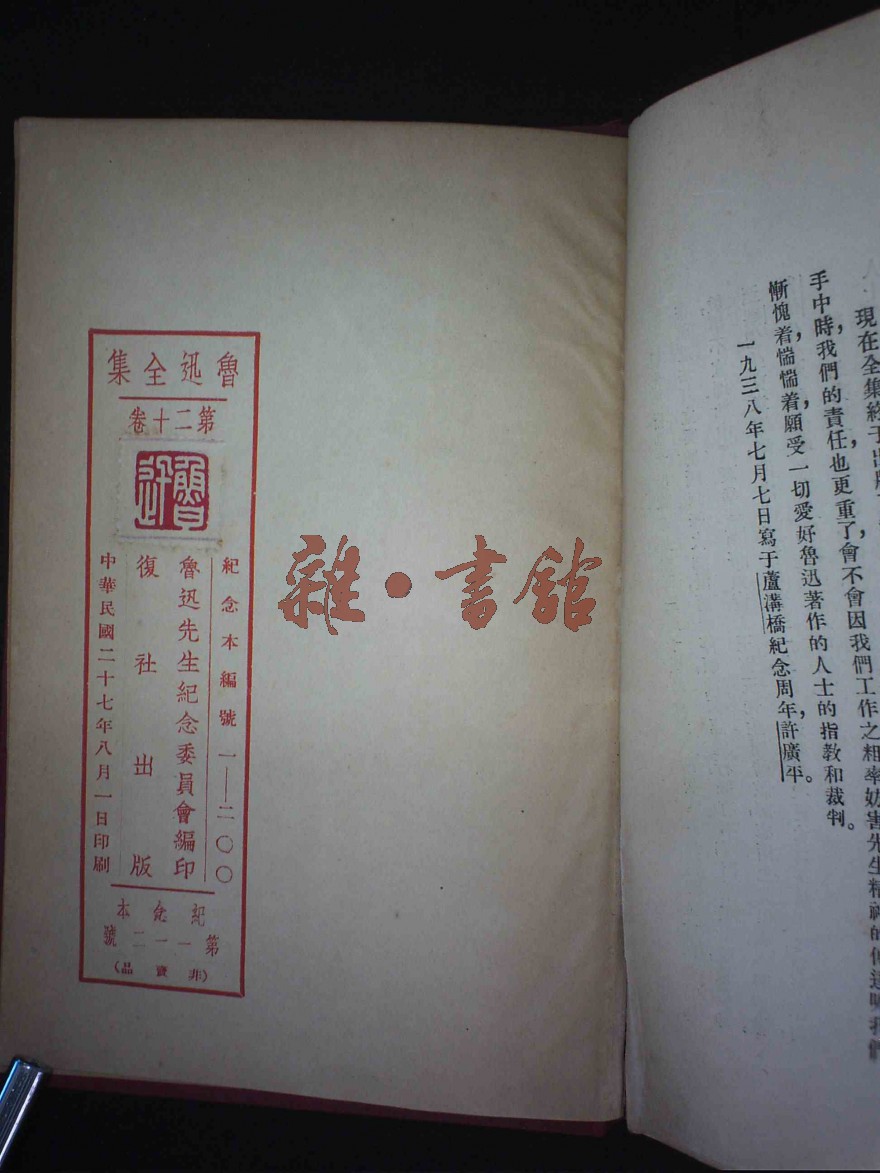 現在全集終于出版
手中時，我們的責任也更重了，會不會因我們工作之粗率妨害先生精神的
慚愧着，惴惴着，願受一切愛好魯迅著作的人士的指教和裁判。
一九三八年七月七日寫于蘆溝橋紀念周年，許廣平。
魯迅全集
第二十卷
魯迅
紀念本編號一——二〇〇
魯迅先生紀念委員會編印
復社出版
中華民國二十七年八月一日印刷
紀念本
第一一二號
（非賣品）
雜·書館